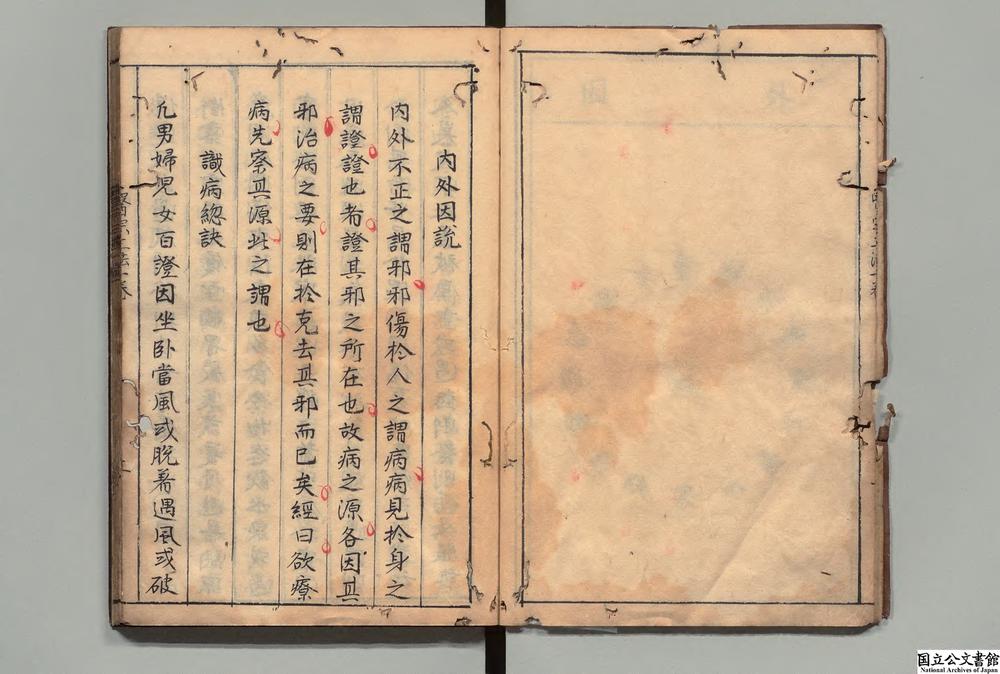 內外因說
內外不正之謂邪邪傷於人之謂病病見於身之
謂證證也者證其邪之所在也故病之源各因其
邪治病之要則在於克去其邪而已矣經曰欲療
病先察其源此之謂也
識病總訣
凡男婦児女百證因坐卧當風或脫着遇風或破
国立公文書館
National Archives of Japan